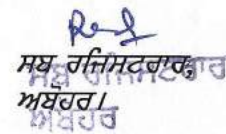 ਸਬ ਰਜਿਸਟਰਾਰ,
ਅਬੋਹਰ।
ਸਬ ਰਜਿਸਟਰਾਰ
ਅਬੋਹਰ